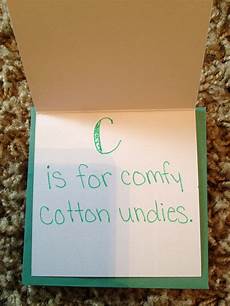 C
is for comfy
cotton undies.